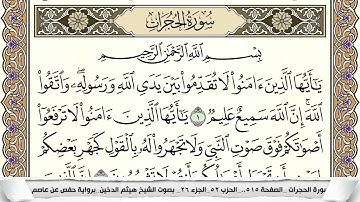 سُورَةُ الحُجُرَاتِ
بِسْمِ ٱللَّهِ ٱلرَّحْمَٰنِ ٱلرَّحِيمِ
يَٰٓأَيُّهَا ٱلَّذِينَ ءَامَنُوا۟ لَا تُقَدِّمُوا۟ بَيْنَ يَدَىِ ٱللَّهِ وَرَسُولِهِۦ ۖ وَٱتَّقُوا۟
ٱللَّهَ ۚ إِنَّ ٱللَّهَ سَمِيعٌ عَلِيمٌ ١ يَٰٓأَيُّهَا ٱلَّذِينَ ءَامَنُوا۟ لَا تَرْفَعُوٓا۟
أَصْوَٰتَكُمْ فَوْقَ صَوْتِ ٱلنَّبِىِّ وَلَا تَجْهَرُوا۟ لَهُۥ بِٱلْقَوْلِ كَجَهْرِ بَعْضِكُمْ
سورة الحجرات _الصفحة ٥١٥_ الحزب ٥٢_الجزء ٢٦_ بصوت الشيخ هيثم الدخين_ برواية حفص عن عاصم